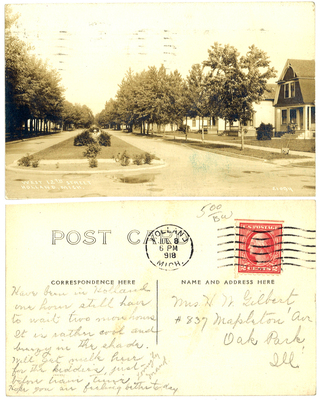 WEST 12TH STREET
HOLLAND, MICH.
500
POST CARD
HOLLAND
JUL 8
6 PM
1918
MICH.
U.S. POSTAGE
2 CENTS 2
CORRESPONDENCE HERE
NAME AND ADDRESS HERE
Have been in Holland
one hour still have
to wait two more hours
It is rather cool and
breezy in the shade.
Will get milk here
for the kiddies, just
before train time.
Hope you are feeling better to day
Mrs H. W. Gilbert
#837 Mapleton Av
Oak Park,
Ill